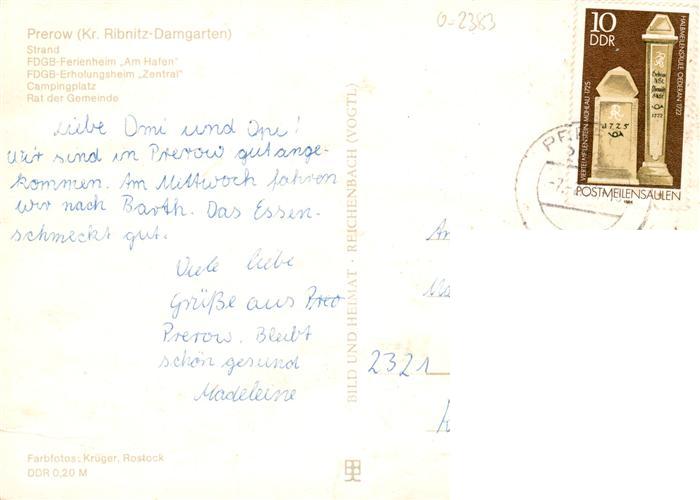 Prerow (Kr. Ribnitz-Damgarten)
Strand
FDGB-Ferienheim „Am Hafen"
FDGB-Erholungsheim „Zentral"
Campingplatz
Rat der Gemeinde
Liebe Omi und Opi!
Wir sind in Prerow gut ange-
kommen. Am Mittwoch fahren
wir nach Barth. Das Essen-
schmeckt gut.
Viele liebe
Grüße aus Preo
Prerow. Bleibt
schön gesund
Madeleine
Farbfotos: Krüger, Rostock
DDR 0,20 M
BILD UND HEIMAT · REICHENBACH (VOGTL)
0-2383
10
DDR
VIERTELMEILENSTEIN MÜHLAU 1725
HALBMEILENSÄULE OEDERAN 1722
1725
1722
POSTMEILENSÄULEN
1984
An
2321